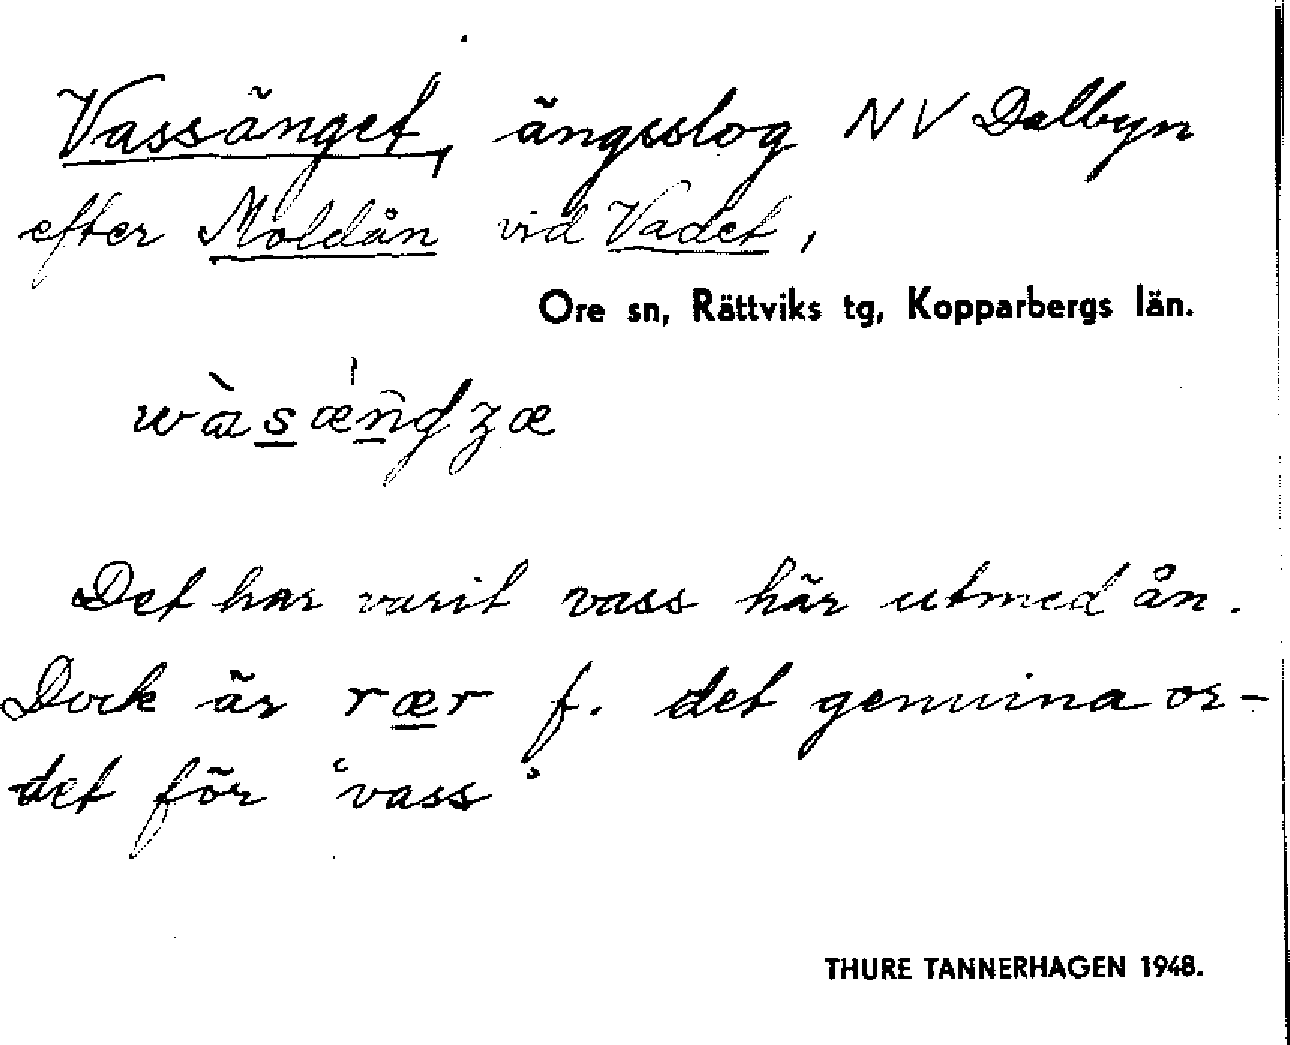 Vassänget, ängsslog NV Dalbyn
efter Moldån vid Vadet,
Ore sn, Rättviks tg, Kopparbergs län.
wàsǽndʒæ
Det har varit vass här utmed ån.
Dock är rær f. det genuina or-
det för 'vass'
THURE TANNERHAGEN 1948.